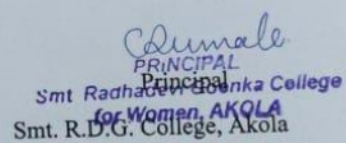 PRINCIPAL
Principal
Smt Radhadevi Goenka College
for Women, AKOLA
Smt. R.D.G. College, Akola